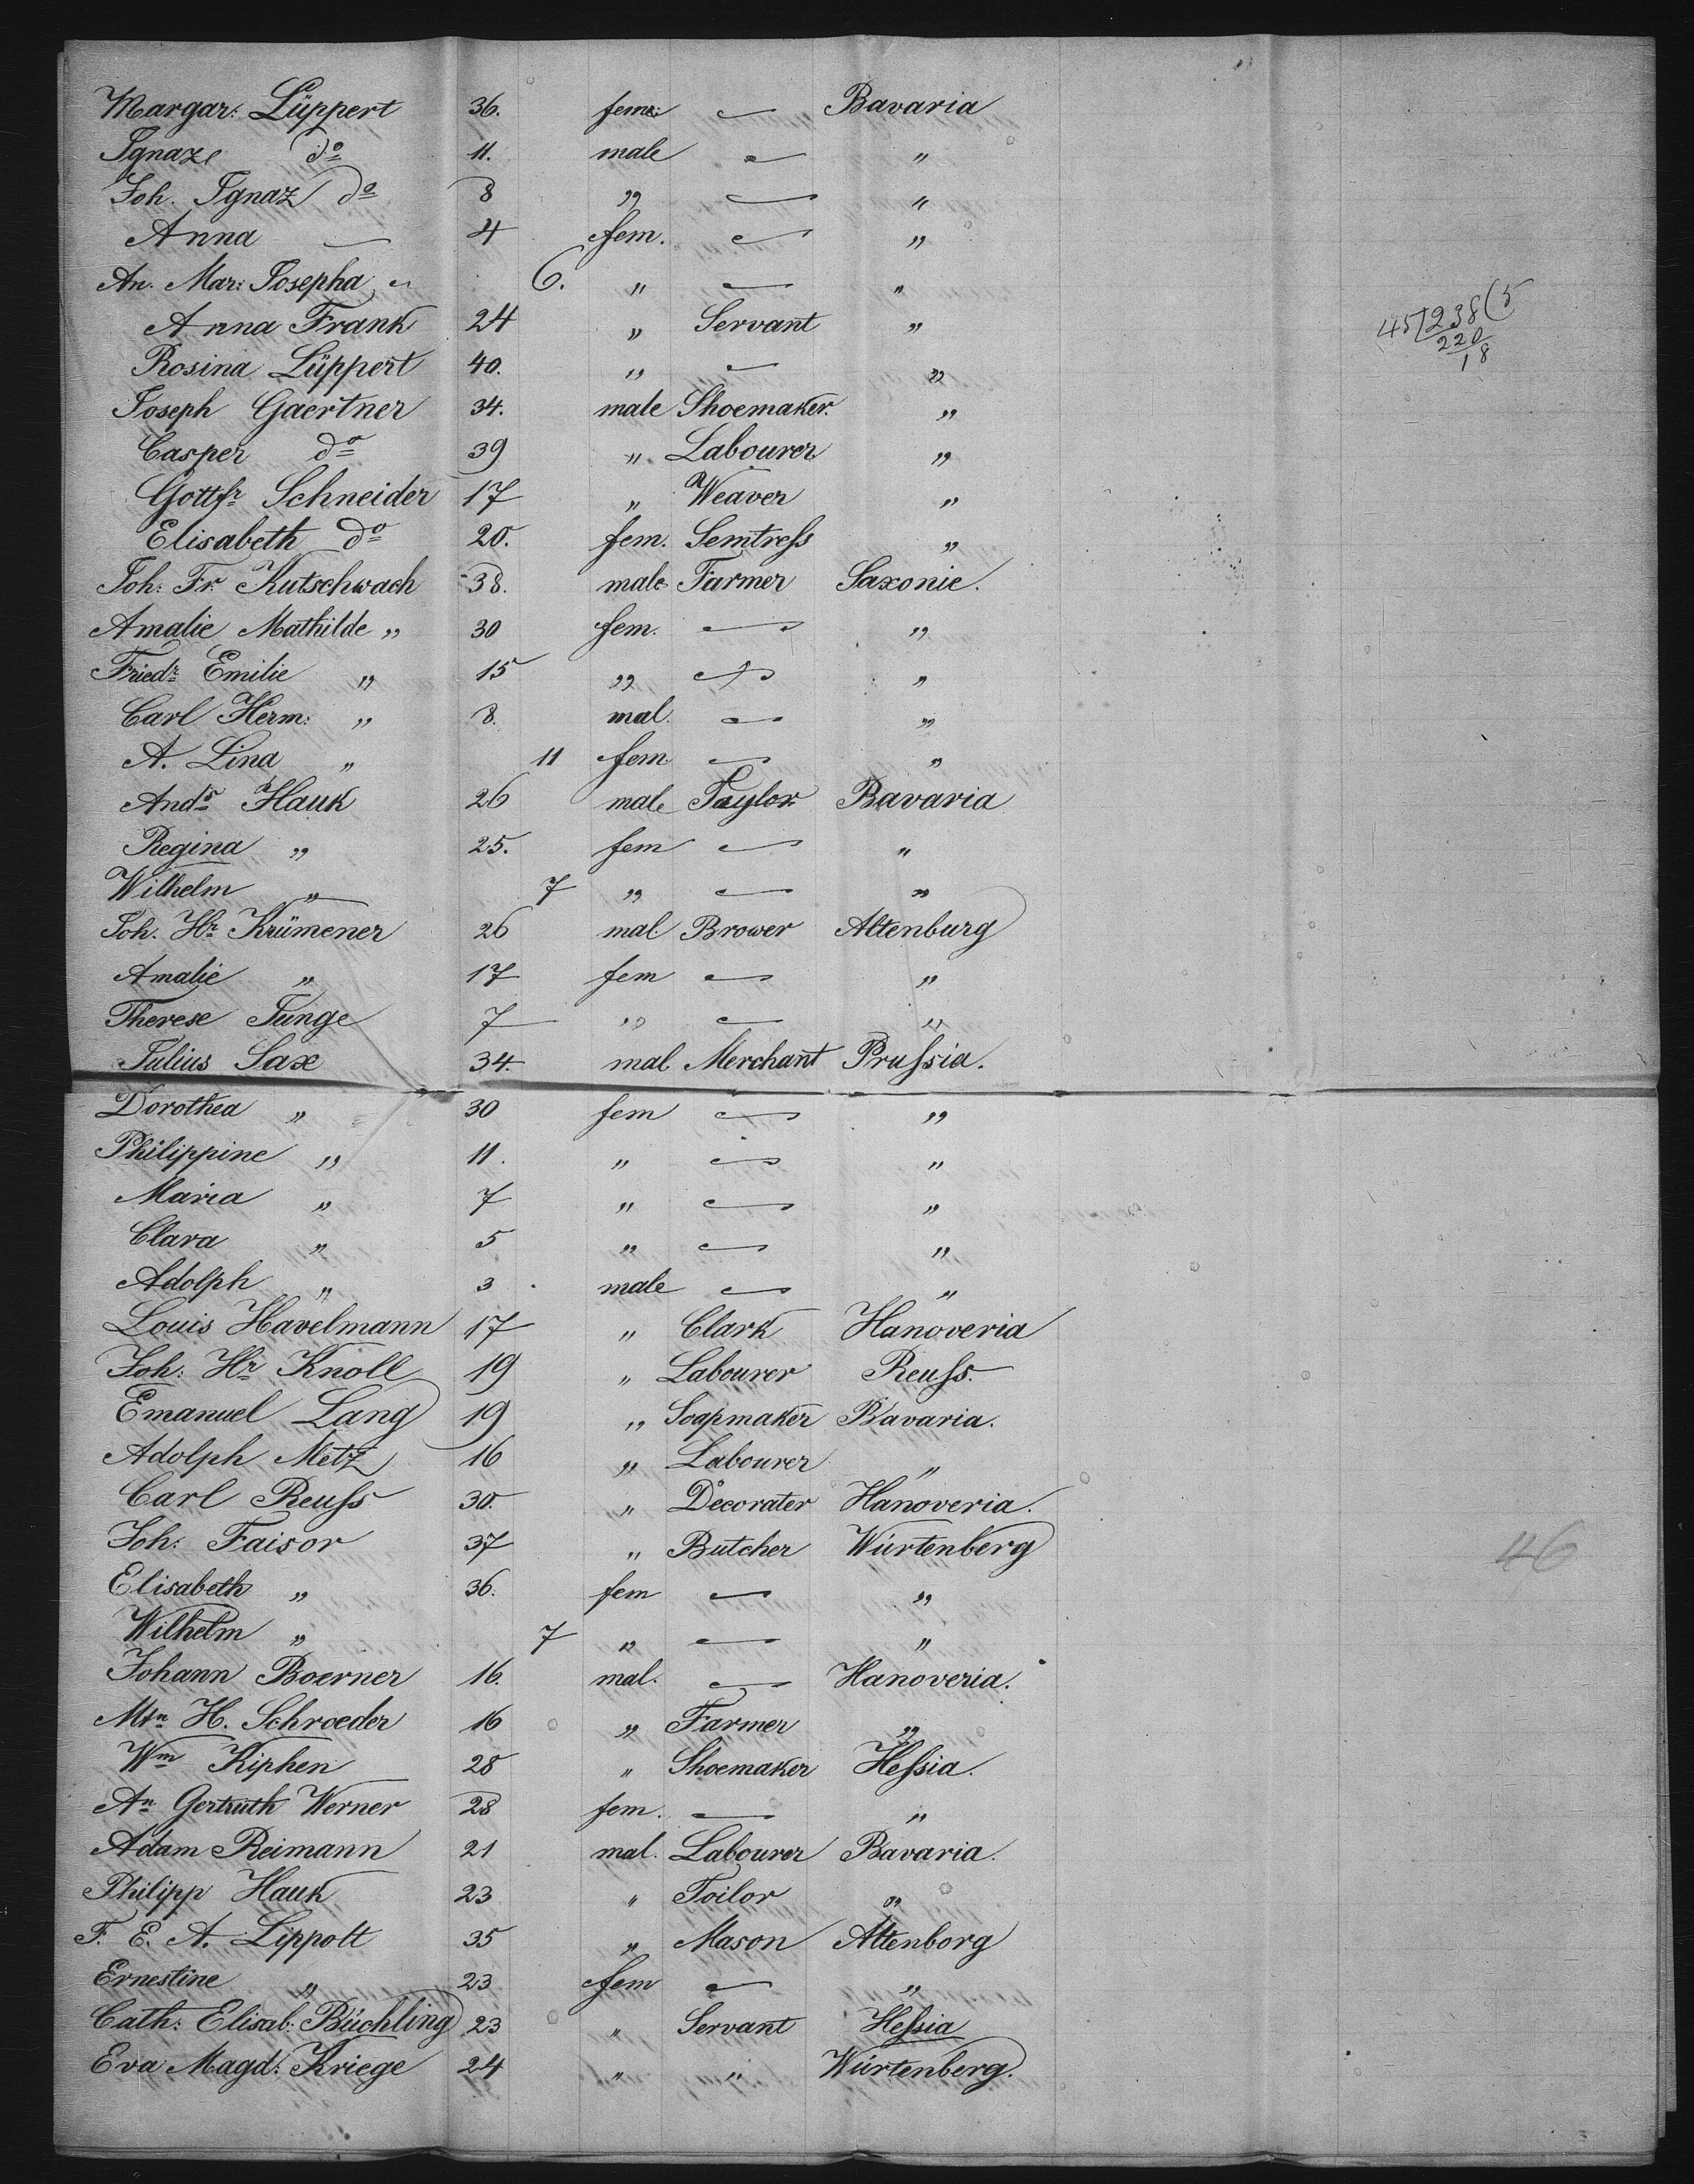 Margar: Lüppert 36. fem: — Bavaria
Ignaz do 11. male — "
Joh. Ignaz do 8 " — "
Anna — 4 fem. — "
An. Mar: Josepha " 6. " — "
Anna Frank 24 " Servant "
45/238(5
220
18
Rosina Lüppert 40. " — "
Joseph Gaertner 34. male Shoemaker. "
Casper do 39 " Labourer "
Gottfr Schneider 17 " Weaver "
Elisabeth do 20. fem. Semtress "
Joh: Fr. Kutschwach 38. male Farmer Saxonie.
Amalie Mathilde " 30 fem. — "
Friedr Emilie " 15 " — "
Carl Herm: " 8. mal. — "
A. Lina " 11 fem — "
Andr Hauk 26 male Taylor Bavaria
Regina " 25. fem — "
Wilhelm " 7 " — "
Joh. Hr Krümener 26 mal Brower Altenburg
Amalie " 17 fem — "
Therese Junge 7 " — "
Julius Sax 34. mal Merchant Prussia.
Dorothea " 30 fem — "
Philippine " 11. " — "
Maria " 7 " — "
Clara " 5 " — "
Adolph " 3 male — "
Louis Havelmann 17 " Clark Hanoveria
Joh: Hr Knoll 19 " Labourer Reuss.
Emanuel Lang 19 " Soapmaker Bavaria.
Adolph Metz 16 " Labourer "
Carl Reuss 30. " Decorater Hanoveria.
Joh: Faisor 37 " Butcher Würtenberg
46
Elisabeth " 36. fem — "
Wilhelm " 7 " — "
Johann Boerner 16. mal. — Hanoveria.
Mtn H. Schroeder 16 " Farmer "
Wm Kiphen 28 " Shoemaker Hessia.
An Gertruth Werner 28 fem. — "
Adam Reimann 21 mal. Labourer Bavaria.
Philipp Hauk 23 " Toilor "
F. E. A. Lippolt 35 " Mason Altenborg
Ernestine " 23 fem — "
Cath: Elisab: Büchling 23 " Servant Hessia
Eva Magd: Kriege 24 " " Würtenberg.